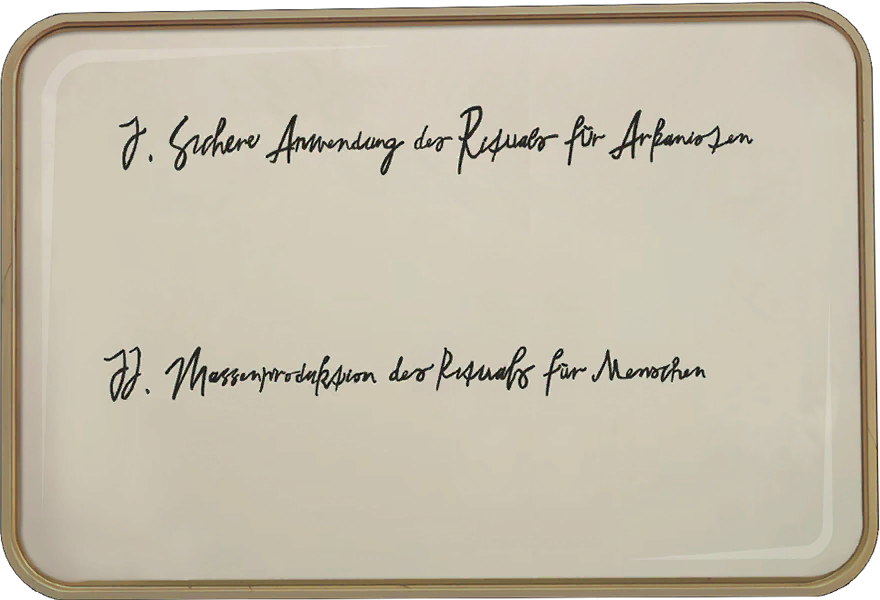 I. Sichere Anwendung des Rituals für Arkanisten
II. Massenproduktion des Rituals für Menschen